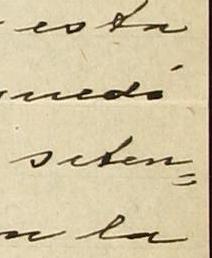 esta
quedó
seten=
n la